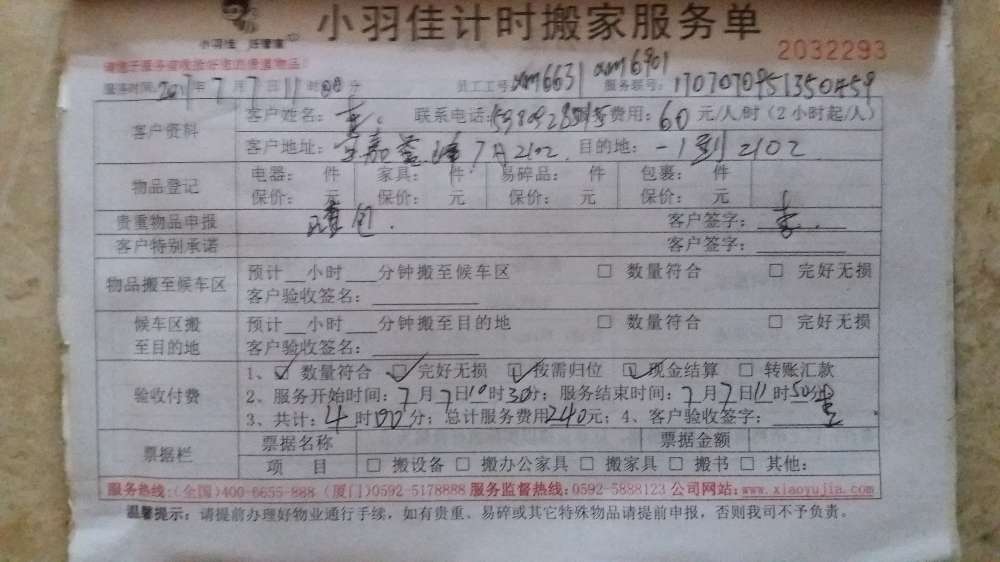 小羽佳计时搬家服务单
小羽佳
2032293
服务时间:2017年7月7日11时00分 员工工号:xm6631 xm6901 服务联号:1707070951350459
客户资料 客户姓名: 李. 联系电话: 费用:60元/人/时(2小时起/人)
客户地址: 嘉 7月2102 目的地:-1到2102
物品登记 电器: 件 家具: 件 易碎品: 件 包裹: 件
保价: 元 保价: 元 保价: 元 保价: 元
贵重物品申报 包. 客户签字:李.
客户特别承诺 客户签字:
物品搬至候车区 预计__小时___分钟搬至候车区 □ 数量符合 □ 完好无损
客户验收签名:
候车区搬至目的地 预计__小时___分钟搬至目的地 □ 数量符合 □ 完好无损
客户验收签名:
验收付费 1、☑ 数量符合 ☑ 完好无损 ☑ 按需归位 ☑ 现金结算 □ 转账汇款
2、服务开始时间:7月7日10时30分;服务结束时间:7月7日11时50分
3、共计:4时00分;总计服务费用240元;4、客户验收签字:李
票据栏 票据名称 票据金额
项 目 □ 搬设备 □ 搬办公家具 □ 搬家具 □ 搬书 □ 其他:
服务热线:(全国)400-6655-888 (厦门)0592-5178888 服务监督热线:0592-5888123 公司网站:www.xiaoyujia.com
温馨提示:请提前办理好物业通行手续,如有贵重、易碎或其它特殊物品请提前申报,否则我司不予负责。